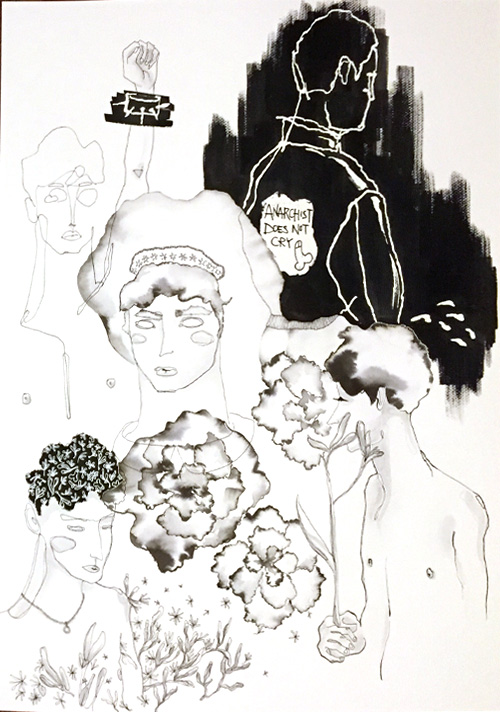 ANARCHIST
DOES NOT
CRY